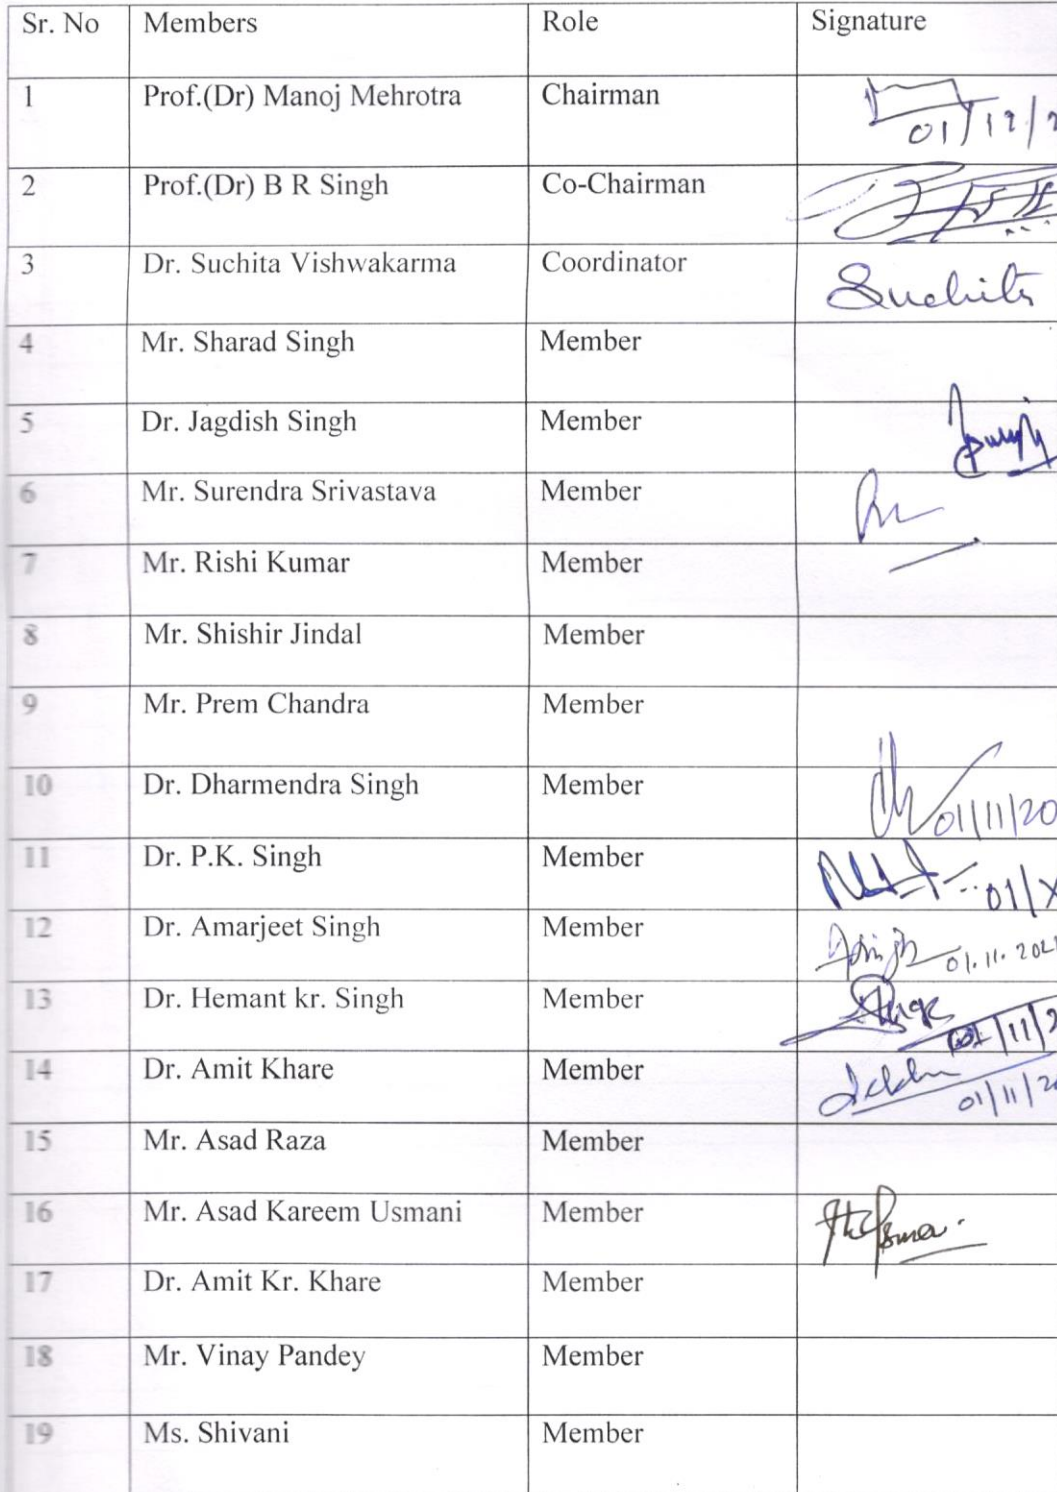 Sr. No Members Role Signature
1 Prof.(Dr) Manoj Mehrotra Chairman
01/12/2
2 Prof.(Dr) B R Singh Co-Chairman
3 Dr. Suchita Vishwakarma Coordinator Suchita
4 Mr. Sharad Singh Member
5 Dr. Jagdish Singh Member
6 Mr. Surendra Srivastava Member
7 Mr. Rishi Kumar Member
8 Mr. Shishir Jindal Member
9 Mr. Prem Chandra Member
10 Dr. Dharmendra Singh Member 01/11/20
11 Dr. P.K. Singh Member 01/X
12 Dr. Amarjeet Singh Member 01.11.2021
13 Dr. Hemant kr. Singh Member 01/11/2
14 Dr. Amit Khare Member 01/11/20
15 Mr. Asad Raza Member
16 Mr. Asad Kareem Usmani Member
17 Dr. Amit Kr. Khare Member
18 Mr. Vinay Pandey Member
19 Ms. Shivani Member